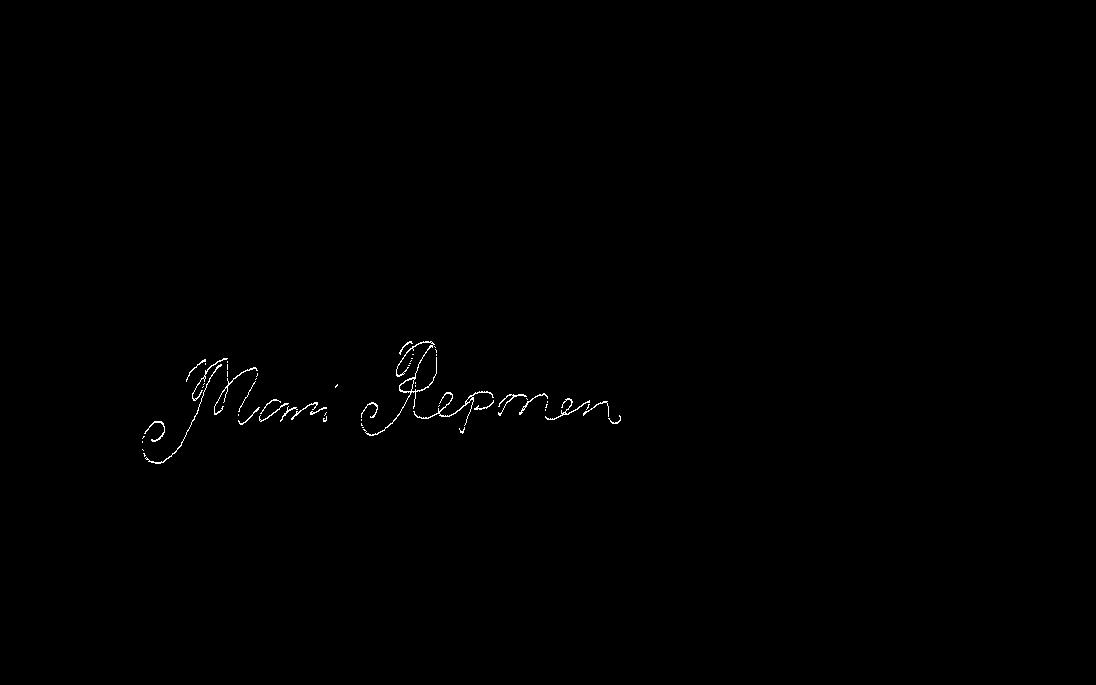 Mani Repmen